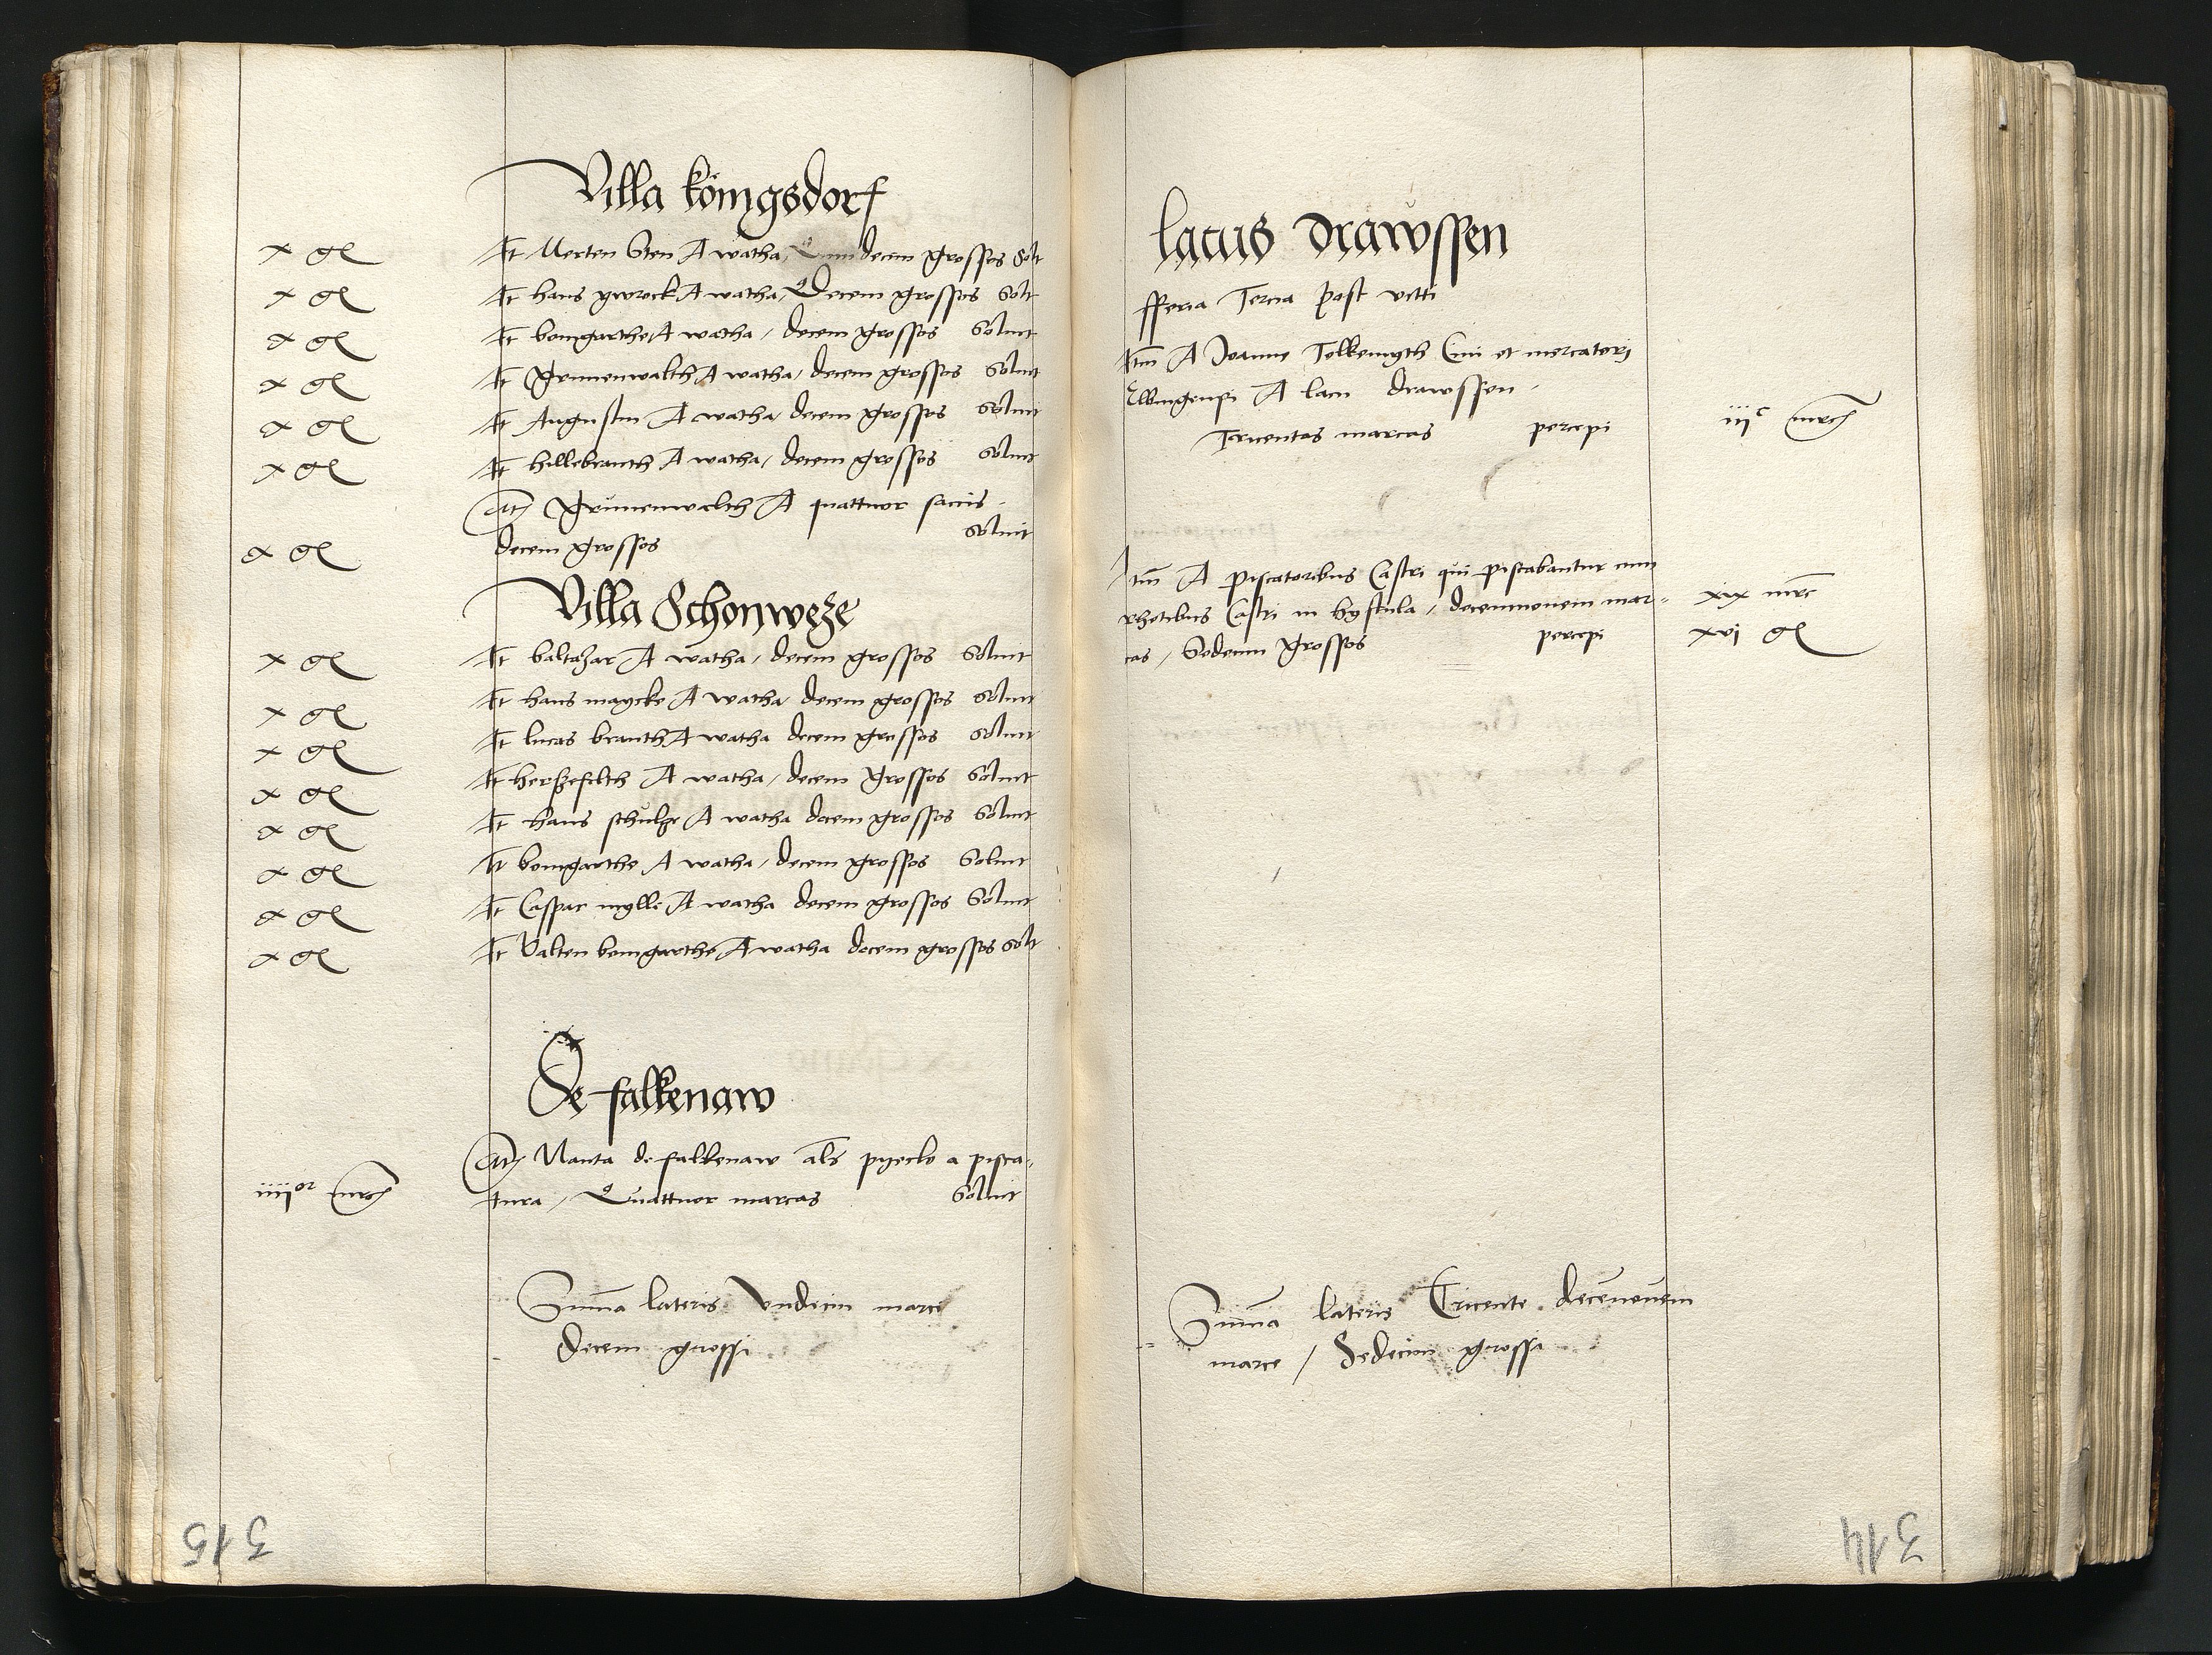 Villa königsdorf
x gr It Merten Sten A watha, decem grossos Solt
x gr It hans gwrck A watha, Decem grossos Solt
x gr It bomgarthe A watha, decem grossos Soluit
x gr It Grunenwalth A watha, decem grossos Soluit
x gr It Augustin A watha decem grossos Soluit
x gr It hillebranth A watha, decem grossos Soluit
It Grünenwalth A quattuor saccis
x gr decem grossos Soluit
Villa Schonweze
x gr It baltazar A watha, decem grossos Soluit
x gr It hans maycke A watha decem grossos Soluit
x gr It lucas branth A watha decem grossos Soluit
x gr It herszefelth A watha, decem grossos Soluit
x gr It hans schulze A watha decem grossos Soluit
x gr It bomgarthe A watha, decem grossos Soluit
x gr It Caspar mylle A watha decem grossos Soluit
x gr It Valten bomgarthe A watha decem grossos Solt
De falkenaw
It Manta de falkenaw als pyeclo a pisca-
iiiior mrc tura, Quattuor marcas Soluit
Suma lateris Vndecim marce
decem grossi
315
lacus Drawssen
fferia Tercia post viti
Itm A Joanne Tolkemyth Ciui et mercatori
Elbingensi A lacu drawssen
Tricentas marcas percepi iijc mrc
Itm A piscatoribus Castri qui piscabantur cum
rhetibus Castri in hystula, decemnouem mar- xix mrc
cas, Sedecim grossos percepi xvj gr
Suma lateris Tricente decenouem
marce / Sedecim grossi
314